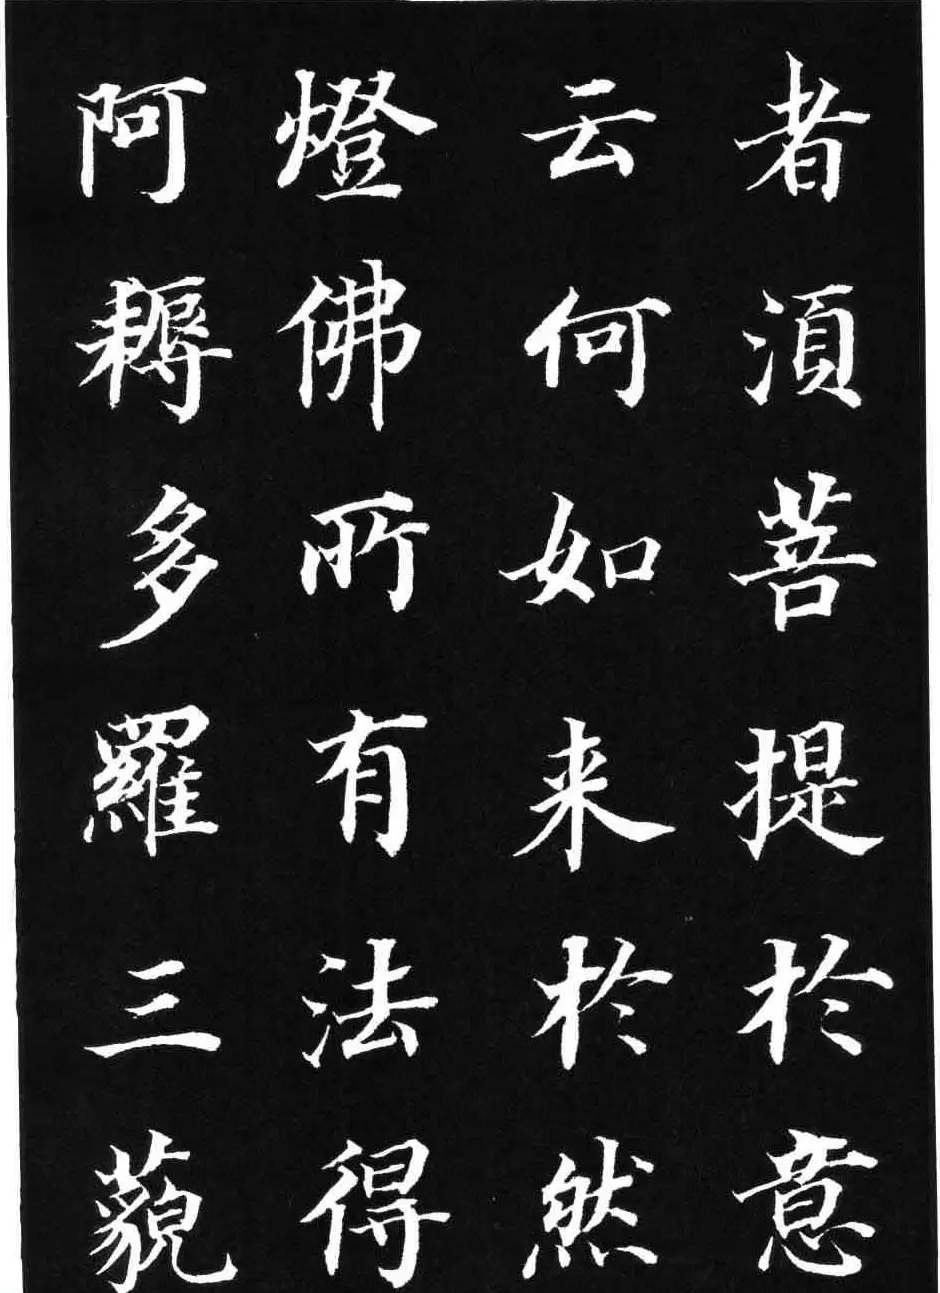 者湏菩提於意
云何如来於然
燈佛所有法得
阿耨多羅三藐